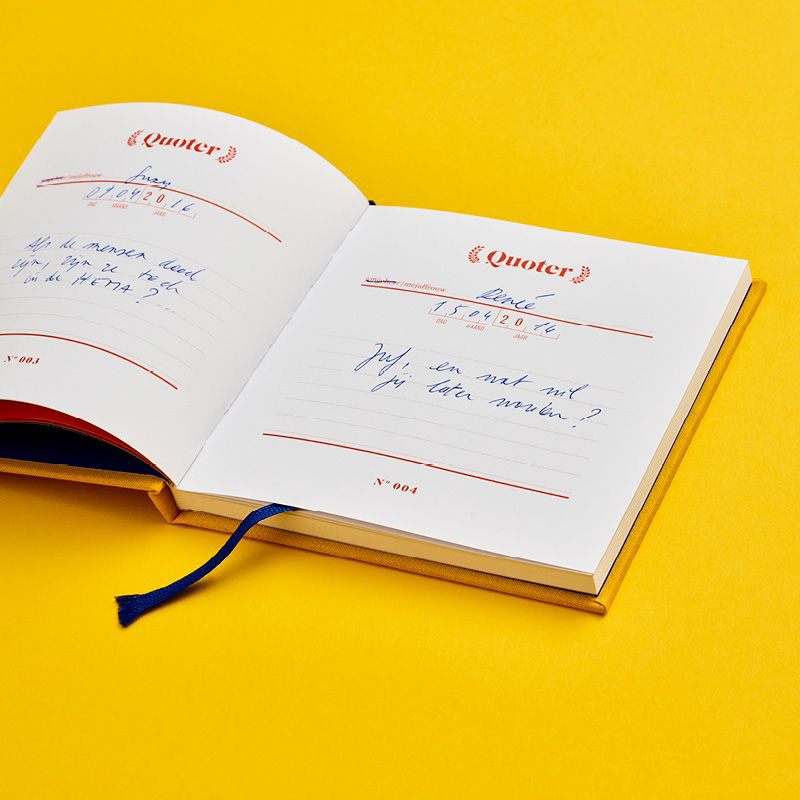 Quoter
jongeheer/mejuffrouw Suzy
09 04 20 16
DAG MAAND JAAR
Als de mensen dood
zijn, zijn ze toch
in de HEMA?...
Nº 003
Quoter
jongeheer/mejuffrouw Renée
15 04 20 16
DAG MAAND JAAR
Juf, en wat wil
jij later worden?
Nº 004